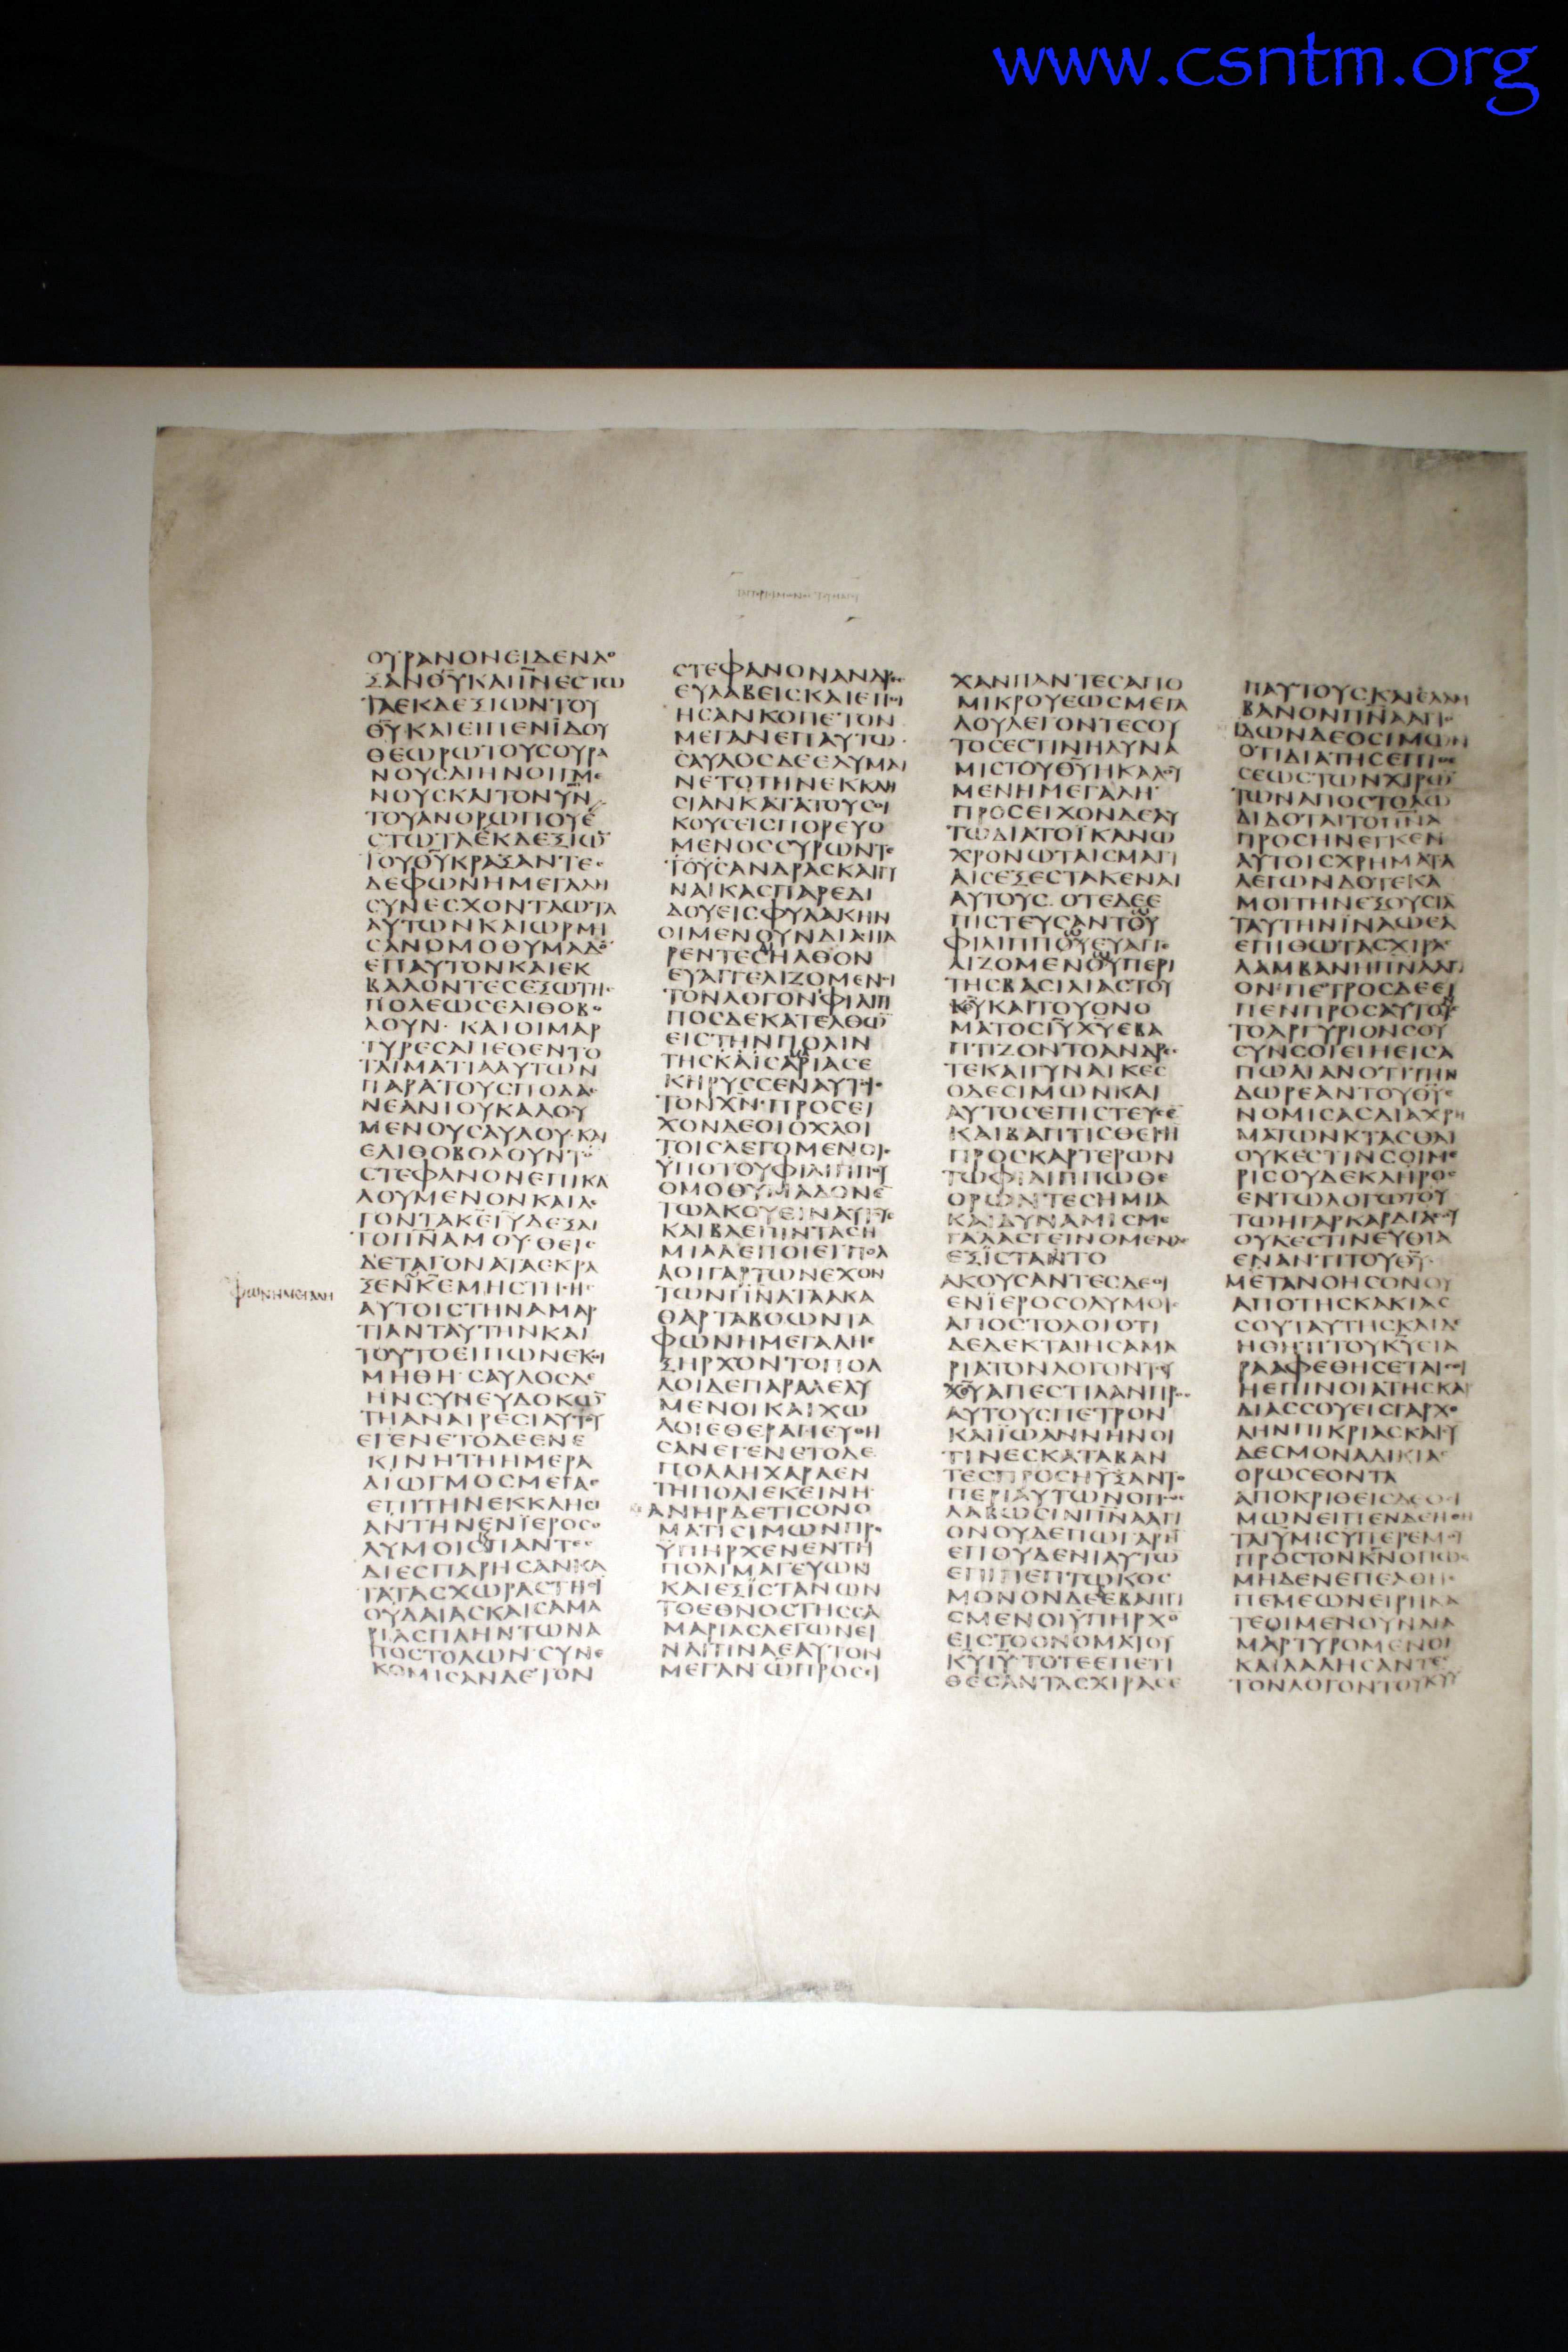 www.csntm.org
ΟΥΡΑΝΟΝΕΙΔΕΝΔΟ
ΞΑΝΘΥΚΑΙΙΝΕΣΤΩ
ΤΑΕΚΔΕΞΙΩΝΤΟΥ
ΘΥΚΑΙΕΙΠΕΝΪΔΟΥ
ΘΕΩΡΩΤΟΥϹΟΥΡΑ
ΝΟΥϹΔΙΗΝΟΙΓΜΕ
ΝΟΥϹΚΑΙΤΟΝΥΝ
ΤΟΥΑΝΘΡΩΠΟΥΕ
ϹΤΩΤΑΕΚΔΕΞΙΩ
ΤΟΥΘΥΚΡΑΞΑΝΤΕϹ
ΔΕΦΩΝΗΜΕΓΑΛΗ
ϹΥΝΕϹΧΟΝΤΑΩΤΑ
ΑΥΤΩΝΚΑΙΩΡΜΗ
ϹΑΝΟΜΟΘΥΜΑΔΟ
ΕΠΑΥΤΟΝΚΑΙΕΚ
ΒΑΛΟΝΤΕϹΕΞΩΤΗϹ
ΠΟΛΕΩϹΕΛΙΘΟΒΟ
ΛΟΥΝ· ΚΑΙΟΙΜΑΡ
ΤΥΡΕϹΑΠΕΘΕΝΤΟ
ΤΑΙΜΑΤΙΑΑΥΤΩΝ
ΠΑΡΑΤΟΥϹΠΟΔΑϹ
ΝΕΑΝΙΟΥΚΑΛΟΥ
ΜΕΝΟΥϹΑΥΛΟΥ·ΚΑΙ
ΕΛΙΘΟΒΟΛΟΥΝΤΟ
ϹΤΕΦΑΝΟΝΕΠΙΚΑ
ΛΟΥΜΕΝΟΝΚΑΙΛΕ
ΓΟΝΤΑΚΕΙΥΔΕΞΑΙ
ΤΟΠΝΑΜΟΥ·ΘΕΙϹ
ΔΕΤΑΓΟΝΑΤΑΕΚΡΑ
ΦΩΝΗΜΕΓΑΛΗ
ΞΕΝΚΕΜΗϹΤΗϹΗϹ
ΑΥΤΟΙϹΤΗΝΑΜΑΡ
ΤΙΑΝΤΑΥΤΗΝΚΑΙ
ΤΟΥΤΟΕΙΠΩΝΕΚΟΙ
ΜΗΘΗ·ϹΑΥΛΟϹΔΕ
ΗΝϹΥΝΕΥΔΟΚΩ
ΤΗΑΝΑΙΡΕϹΙΑΥΤΟΥ
ΕΓΕΝΕΤΟΔΕΕΝΕ
ΚΙΝΗΤΗΗΜΕΡΑ
ΔΙΩΓΜΟϹΜΕΓΑϹ
ΕΠΙΤΗΝΕΚΚΛΗϹΙ
ΑΝΤΗΝΕΝΪΕΡΟϹΟ
ΛΥΜΟΙϹΠΑΝΤΕϹ
ΔΙΕϹΠΑΡΗϹΑΝΚΑ
ΤΑΤΑϹΧΩΡΑϹΤΗϹΪ
ΟΥΔΑΙΑϹΚΑΙϹΑΜΑ
ΡΙΑϹΠΛΗΝΤΩΝΑ
ΠΟϹΤΟΛΩΝ·ϹΥΝΕ
ΚΟΜΙϹΑΝΔΕΤΟΝ
ϹΤΕΦΑΝΟΝΑΝΔΡΕϹ
ΕΥΛΑΒΕΙϹΚΑΙΕΠΟΙ
ΗϹΑΝΚΟΠΕΤΟΝ
ΜΕΓΑΝΕΠΑΥΤΩ·
ϹΑΥΛΟϹΔΕΕΛΥΜΑΙ
ΝΕΤΟΤΗΝΕΚΚΛΗ
ϹΙΑΝΚΑΤΑΤΟΥϹΟΙ
ΚΟΥϹΕΙϹΠΟΡΕΥΟ
ΜΕΝΟϹϹΥΡΩΝΤΕ
ΤΟΥϹΑΝΔΡΑϹΚΑΙΓΥ
ΝΑΙΚΑϹΠΑΡΕΔΙ
ΔΟΥΕΙϹΦΥΛΑΚΗΝ
ΟΙΜΕΝΟΥΝΔΙΑϹΠΑ
ΡΕΝΤΕϹΗΛΘΟΝ
ΕΥΑΓΓΕΛΙΖΟΜΕΝΟΙ
ΤΟΝΛΟΓΟΝΦΙΛΙΠ
ΠΟϹΔΕΚΑΤΕΛΘΩ
ΕΙϹΤΗΝΠΟΛΙΝ
ΤΗϹΚΑΙϹΑΡΙΑϹΕ
ΚΗΡΥϹϹΕΝΑΥΤΟΙϹ
ΤΟΝΧΝ·ΠΡΟϹΕΙ
ΧΟΝΔΕΟΙΟΧΛΟΙ
ΤΟΙϹΛΕΓΟΜΕΝΟΙϹ
ΫΠΟΤΟΥΦΙΛΙΠΠΟΥ
ΟΜΟΘΥΜΑΔΟΝΕ
ΤΩΑΚΟΥΕΙΝΑΥΤΟΥϹ
ΚΑΙΒΛΕΠΙΝΤΑϹΗ
ΜΙΑΑΕΠΟΙΕΙΠΟΛ
ΛΟΙΓΑΡΤΩΝΕΧΟΝ
ΤΩΝΠΝΑΤΑΑΚΑ
ΘΑΡΤΑΒΟΩΝΤΑ
ΦΩΝΗΜΕΓΑΛΗΕ
ΞΗΡΧΟΝΤΟΠΟΛ
ΛΟΙΔΕΠΑΡΑΛΕΛΥ
ΜΕΝΟΙΚΑΙΧΩ
ΛΟΙΕΘΕΡΑΠΕΥΘΗ
ϹΑΝΕΓΕΝΕΤΟΔΕ
ΠΟΛΛΗΧΑΡΑΕΝ
ΤΗΠΟΛΙΕΚΕΙΝΗ·
ΑΝΗΡΔΕΤΙϹΟΝΟ
ΜΑΤΙϹΙΜΩΝΠΡΟ
ΫΠΗΡΧΕΝΕΝΤΗ
ΠΟΛΙΜΑΓΕΥΩΝ
ΚΑΙΕΞΙϹΤΑΝΩΝ
ΤΟΕΘΝΟϹΤΗϹϹΑ
ΜΑΡΙΑϹΛΕΓΩΝΕΙ
ΝΑΙΤΙΝΑΕΑΥΤΟΝ
ΜΕΓΑΝΩΠΡΟϹΕΙ
ΧΑΝΠΑΝΤΕϹΑΠΟ
ΜΙΚΡΟΥΕΩϹΜΕΓΑ
ΛΟΥΛΕΓΟΝΤΕϹΟΥ
ΤΟϹΕϹΤΙΝΗΔΥΝΑ
ΜΙϹΤΟΥΘΥΗΚΑΛΟΥ
ΜΕΝΗΜΕΓΑΛΗ·
ΠΡΟϹΕΙΧΟΝΔΕΑΥ
ΤΩΔΙΑΤΟΪΚΑΝΩ
ΧΡΟΝΩΤΑΙϹΜΑΓΙ
ΑΙϹΕΞΕϹΤΑΚΕΝΑΙ
ΑΥΤΟΥϹ· ΟΤΕΔΕΕ
ΠΙϹΤΕΥϹΑΝΤΟΥ
ΦΙΛΙΠΠΟΥΕΥΑΓΓΕ
ΛΙΖΟΜΕΝΟΥΠΕΡΙ
ΤΗϹΒΑϹΙΛΙΑϹΤΟΥ
ΚΥΚΑΙΤΟΥΟΝΟ
ΜΑΤΟϹΙΥΧΥΕΒΑ
ΠΤΙΖΟΝΤΟΑΝΔΡΕϹ
ΤΕΚΑΙΓΥΝΑΙΚΕϹ
ΟΔΕϹΙΜΩΝΚΑΙ
ΑΥΤΟϹΕΠΙϹΤΕΥϹΕ
ΚΑΙΒΑΠΤΙϹΘΕΙϹΗ
ΠΡΟϹΚΑΡΤΕΡΩΝ
ΤΩΦΙΛΙΠΠΩΘΕ
ΟΡΩΝΤΕϹΗΜΙΑ
ΚΑΙΔΥΝΑΜΙϹΜΕ
ΓΑΛΑϹΓΕΙΝΟΜΕΝΑϹ
ΕΞΙϹΤΑΝΤΟ
ΑΚΟΥϹΑΝΤΕϹΔΕΟΙ
ΕΝΪΕΡΟϹΟΛΥΜΟΙϹ
ΑΠΟϹΤΟΛΟΙΟΤΙ
ΔΕΔΕΚΤΑΙΗϹΑΜΑ
ΡΙΑΤΟΝΛΟΓΟΝΤΟΥ
ΧΥΑΠΕϹΤΙΛΑΝΠΡΟϹ
ΑΥΤΟΥϹΠΕΤΡΟΝ
ΚΑΙΪΩΑΝΝΗΝΟΙ
ΤΙΝΕϹΚΑΤΑΒΑΝ
ΤΕϹΠΡΟϹΗΥΞΑΝΤΟ
ΠΕΡΙΑΥΤΩΝΟΠΩϹ
ΛΑΒΩϹΙΝΠΝΑΑΓΙ
ΟΝΟΥΔΕΠΩΓΑΡΗ
ΕΠΟΥΔΕΝΙΑΥΤΩ
ΕΠΙΠΕΠΤΩΚΟϹ
ΜΟΝΟΝΔΕΕΒΑΠΤΙ
ϹΜΕΝΟΙΫΠΗΡΧΟ
ΕΙϹΤΟΟΝΟΜΑΤΟΥ
ΚΥΙΥ·ΤΟΤΕΕΠΕΤΙ
ΘΕϹΑΝΤΑϹΧΙΡΑϹΕ
ΠΑΥΤΟΥϹΚΑΙΕΛΑΜ
ΒΑΝΟΝΠΝΑΑΓΙΟ
ΙΔΩΝΔΕΟϹΙΜΩΝ
ΟΤΙΔΙΑΤΗϹΕΠΙΘΕ
ϹΕΩϹΤΩΝΧΙΡΩ
ΤΩΝΑΠΟϹΤΟΛΩ
ΔΙΔΟΤΑΙΤΟΠΝΑ
ΠΡΟϹΗΝΕΓΚΕΝ
ΑΥΤΟΙϹΧΡΗΜΑΤΑ
ΛΕΓΩΝΔΟΤΕΚΑ
ΜΟΙΤΗΝΕΞΟΥϹΙΑ
ΤΑΥΤΗΝΪΝΑΩΕΑ
ΕΠΙΘΩΤΑϹΧΙΡΑϹ
ΛΑΜΒΑΝΗΠΝΑΑΓΙ
ΟΝ·ΠΕΤΡΟϹΔΕΕΙ
ΠΕΝΠΡΟϹΑΥΤΟΝ
ΤΟΑΡΓΥΡΙΟΝϹΟΥ
ϹΥΝϹΟΙΕΙΗΕΙϹΑ
ΠΩΛΙΑΝΟΤΙΤΗΝ
ΔΩΡΕΑΝΤΟΥΘΥΕ
ΝΟΜΙϹΑϹΔΙΑΧΡΗ
ΜΑΤΩΝΚΤΑϹΘΑΙ
ΟΥΚΕϹΤΙΝϹΟΙΜΕ
ΡΙϹΟΥΔΕΚΛΗΡΟϹ
ΕΝΤΩΛΟΓΩΤΟΥ
ΤΩΗΓΑΡΚΑΡΔΙΑϹΟΥ
ΟΥΚΕϹΤΙΝΕΥΘΙΑ
ΕΝΑΝΤΙΤΟΥΘΥ·
ΜΕΤΑΝΟΗϹΟΝΟΥ
ΑΠΟΤΗϹΚΑΚΙΑϹ
ϹΟΥΤΑΥΤΗϹΚΑΙΔΕ
ΗΘΗΤΙΤΟΥΚΥΕΙΑ
ΡΑΑΦΕΘΗϹΕΤΑΙϹΟΙ
ΗΕΠΙΝΟΙΑΤΗϹΚΑΡ
ΔΙΑϹϹΟΥΕΙϹΓΑΡΧΟ
ΛΗΝΠΙΚΡΙΑϹΚΑΙϹΥ
ΔΕϹΜΟΝΑΔΙΚΙΑϹ
ΟΡΩϹΕΟΝΤΑ
ΑΠΟΚΡΙΘΕΙϹΔΕΟϹΙ
ΜΩΝΕΙΠΕΝΔΕΗΘΗ
ΤΑΙΫΜΙϹΥΠΕΡΕΜΟΥ
ΠΡΟϹΤΟΝΚΝΟΠΩϹ
ΜΗΔΕΝΕΠΕΛΘΗ·
ΠΕΜΕΩΝΕΙΡΗΚΑ
ΤΕΟΙΜΕΝΟΥΝΔΙΑ
ΜΑΡΤΥΡΟΜΕΝΟΙ
ΚΑΙΛΑΛΗϹΑΝΤΕϹ
ΤΟΝΛΟΓΟΝΤΟΥΚΥ